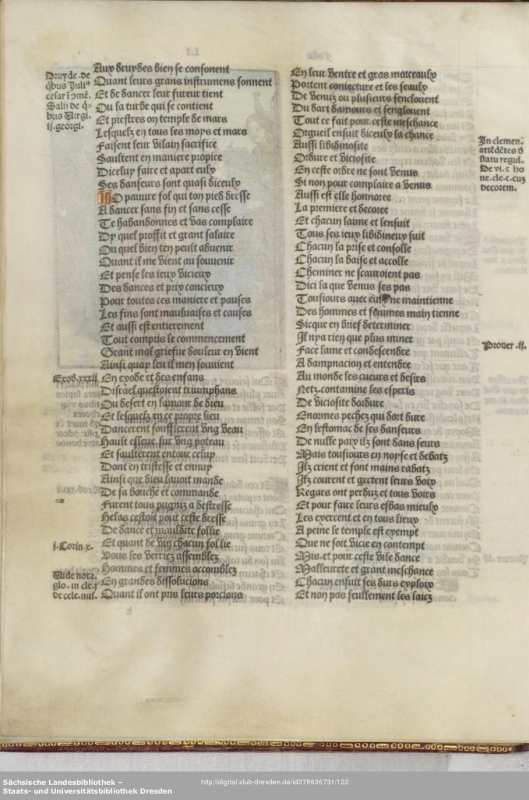 Aux druydes bien se consonent
Quant leurs grans instrumens sonnent
Et de dancer leur fureur tient
Ou sa turbe qui se contient
Et prestres ou temple de mars
Lesquelz en tous les moys et mars
Faisent leur vilain sacrifice
Saultent en maniere propice
Diceluy faire et apart eulx
Ses danseurs sont quasi diceulx
O pauure fol qui ton pied dresse
A dancer sans fin et sans cesse
Te habandonnes et vas complaire
Dy quel proffit et grant salaire
Ou quel bien ten peult aduenir
Quant il me vient au souuenir
Et pense les ieux vicieux
Des dances et prix concieux
Pour toutes ces maniere et pauses
Les fins sont mauluaises et causes
Et aussi est entierement
Tout comptis le commencement
Grant mal griefue douleur en vient
Ainsi quay leu il men souuient
En exode et des enfans
Disrael questoient triumphans
Ou desert en lamont de dieu
Et lesquelz en ce propre lieu
Dancerent souffrerent vng veau
Hault esleue sur vng poteau
Et saulterent entour celuy
Dont en tristesse et ennuy
Ainsi que dieu lauoit mande
De sa bouche et commande
Furent tous pugniz a destresse
Helas cestoit pour ceste dresse
De dance et mauldite follie
Et quant de vin chacun sollie
Vous les verriez assemblez
Hommes et femmes accomblez
En grandes dissolucions
Quant il ont pris leurs porcions
Druyde. de
qbus Juli⁹
cesar
Salii de q-
bus Virgi.
ii. georgi.
Exod. xxxii
i. Corin. x.
Vide nota.
glo. in cle. i
de cele. mis.
En leur ventre et gras morceaulx
Portent coniecture et les seaulx
De Venus ou plusieurs senclouent
Du dart damours et senglouent
Tout ce fait pour ceste meschance
Orgueil ensuit diceulx sa chance
Aussi libidinosite
Ordure et viciosite
En ceste ordre ne sont venus
Si non pour complaire a venus
Aussi est elle honnoree
La premiere et decoree
Et chacun laime et lensuit
Tous ses ieux libidineux suit
Chacun la prise et consolle
Chacun la baise et accolle
Cheminer ne scauroient pas
Dici la que venus ses pas
Tousiours auec eulx ne maintienne
Des hommes et femmes main tienne
Sicque en brief determiner
Il nya rien que plus miner
Face lame et condescendre
A dampnacion et entendre
Au monde les cueurs et desirs
Netz contamine les esperis
De viciosite dordure
Enormes pechez qui dort dure
En lestomac de ses danseurs
De nulle paix ilz sont dans seurs
Mais tousiours en noyse et debatz
Ilz crient et font mains rabatz
Ilz courent et gectent leurs voix
Regars ont perduz et tous voirs
Et pour faire leurs esbas mieulx
Les exercent et en tous lieux
A peine le temple est exempt
Que ne soit vicie en contempt
Mis. et pour ceste vile dance
Malleurete et grant meschance
Chacun ensuit ses durs exploix
Et non pas seullement les laiz
In clemen.
statu regul.
De vi. et ho
ne. cle. c. cuz
decorem.
Prouer .ii.
Sächsische Landesbibliothek –
Staats- und Universitätsbibliothek Dresden
http://digital.slub-dresden.de/id378636731/122